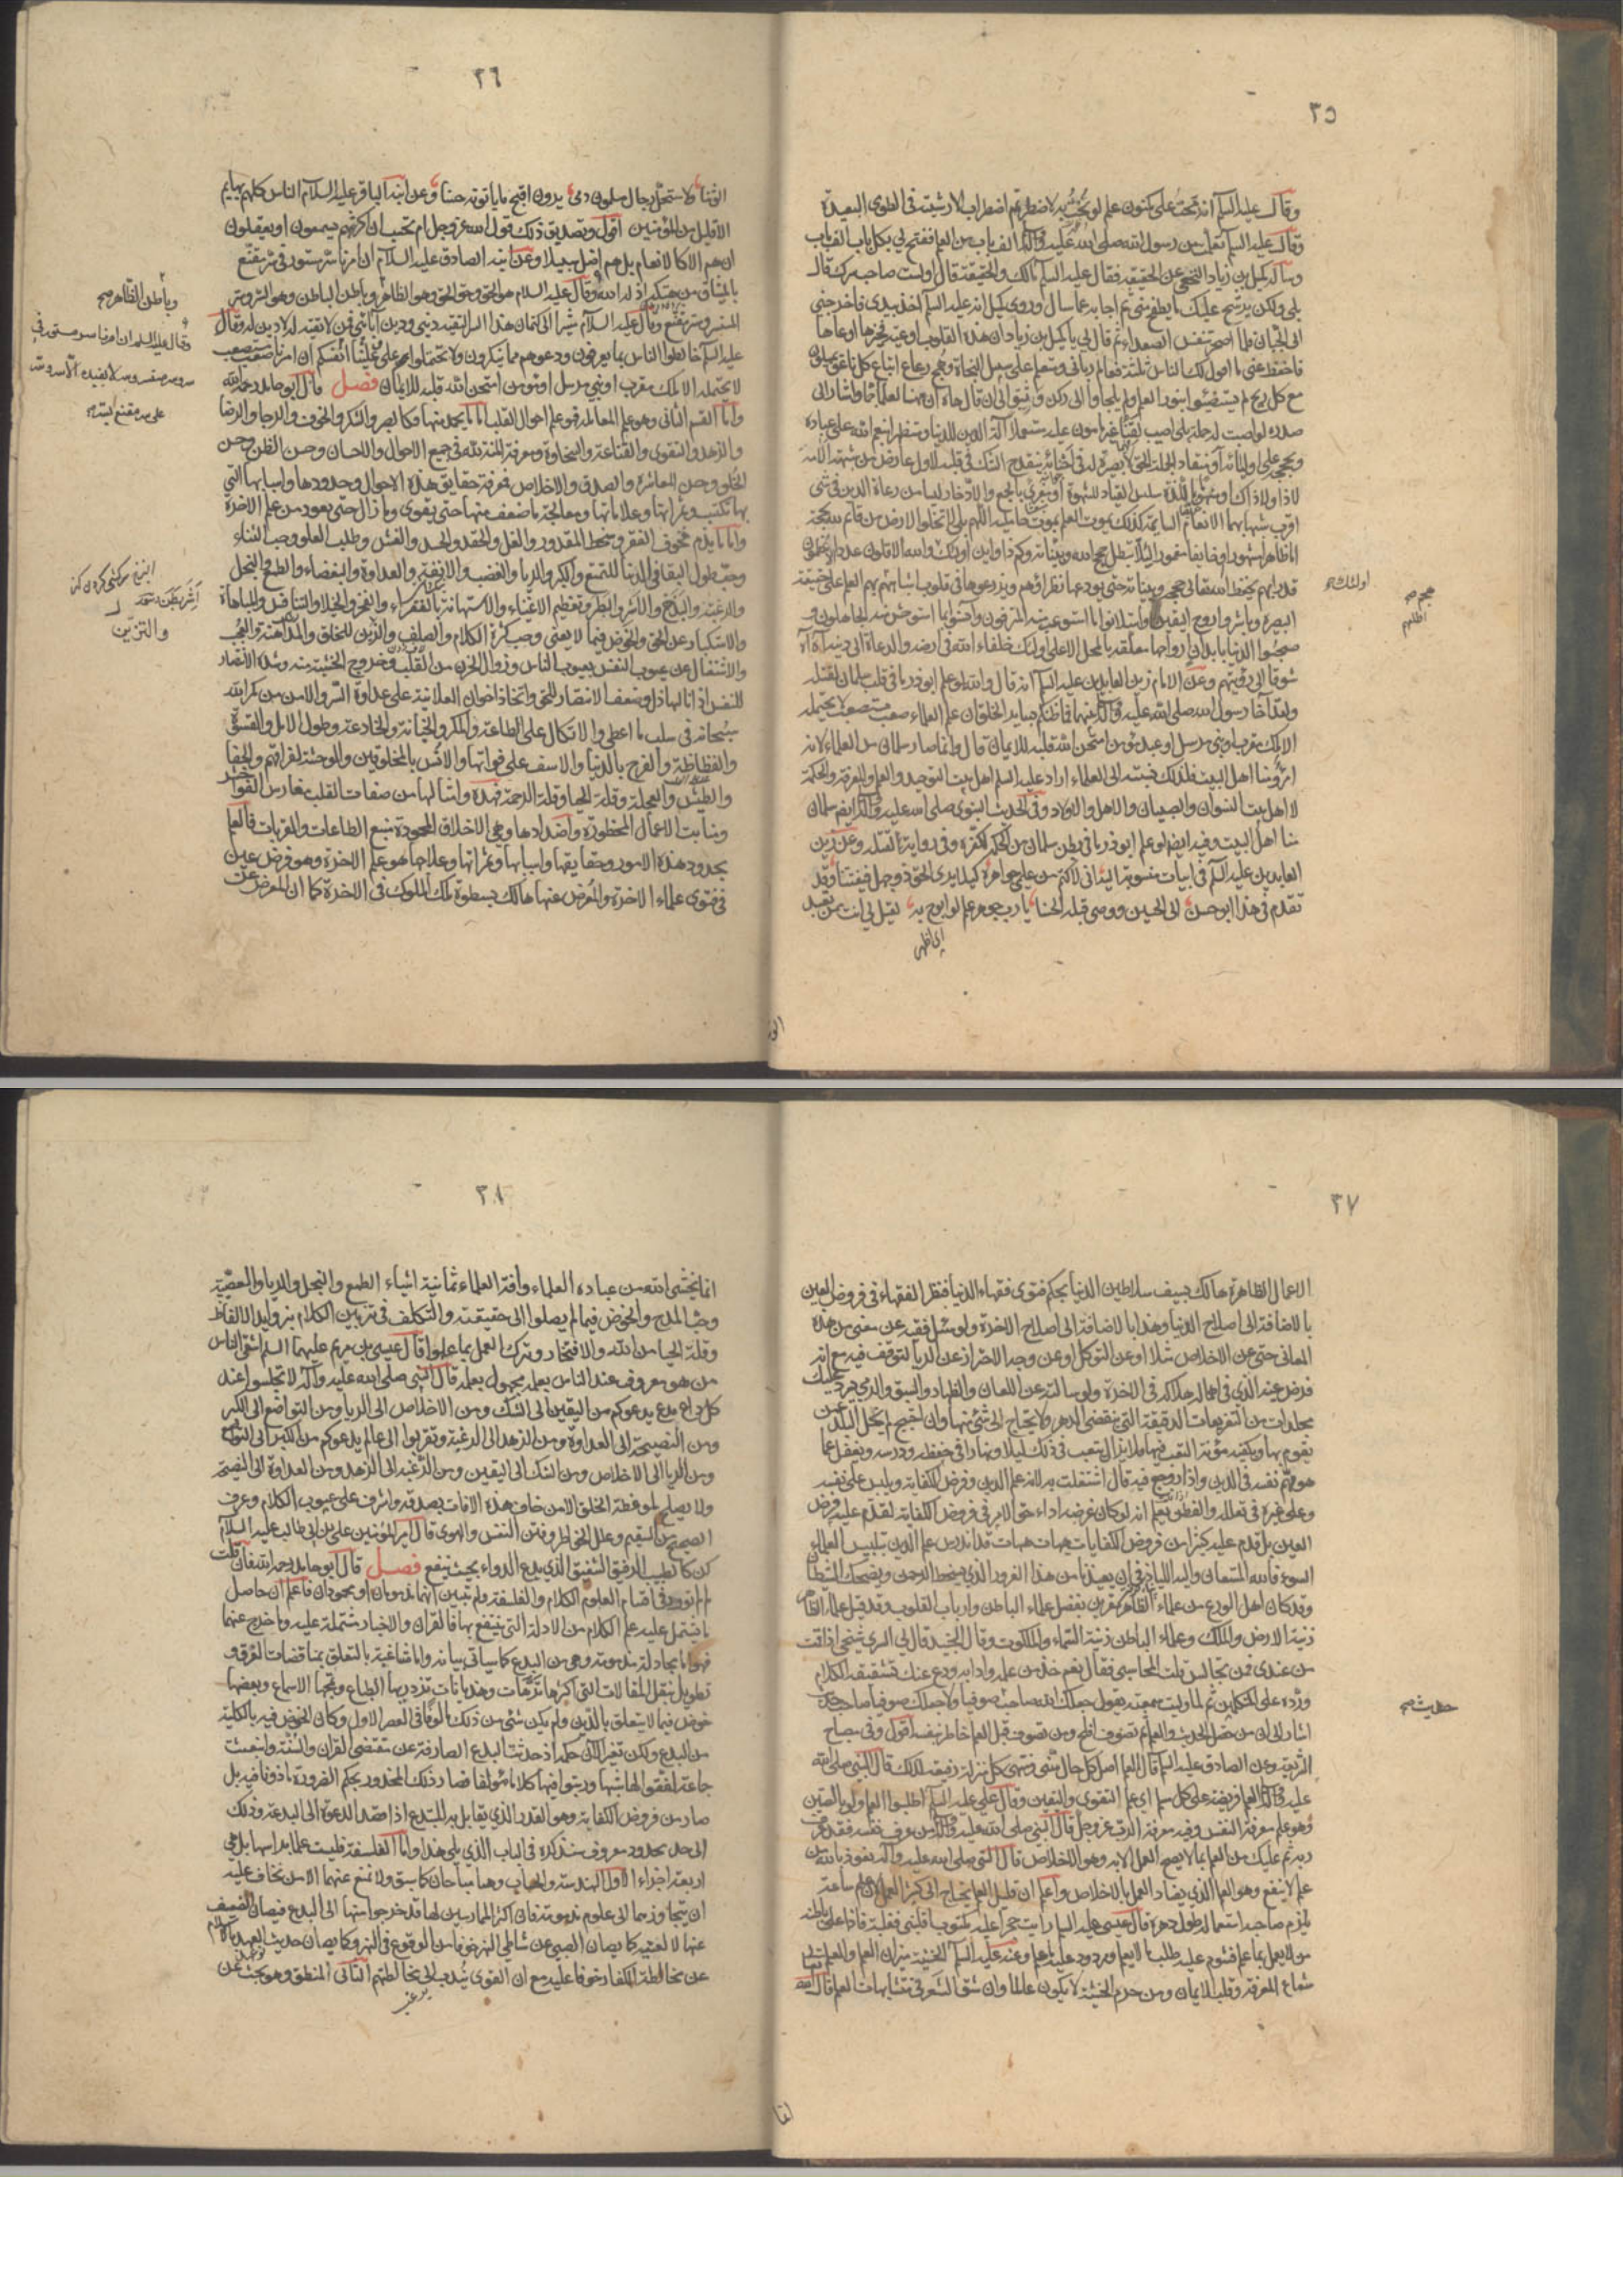 ٣٥
وقال عليه السلم اندمجت على مكنون علم لو بحت به لاضطربتم اضطراب الارشية في الطوى البعيدة
وقال عليه السلم تعلمت من رسول الله صلى الله عليه وآله الف باب من العلم ففتح لي بكل باب الف باب
وسأله كميل بن زياد النخعي عن الحقيقة فقال عليه السلم مالك والحقيقة قال اولست صاحب سرك قال
بلى ولكن يرشح عليك ما يطفح مني ثم اجابه عما سأل وروى كميل انه عليه السلم اخذ بيدي فاخرجني
الى الجبان فلما اصحر تنفس الصعداء ثم قال لي يا كميل بن زياد ان هذه القلوب اوعية فخيرها اوعاها
فاحفظ عني ما اقول لك الناس ثلثة فعالم رباني ومتعلم على سبيل النجاة وهمج رعاع اتباع كل ناعق يميلون
مع كل ريح لم يستضيئوا بنور العلم ولم يلجأوا الى ركن وثيق الى ان قال هاه ان ههنا لعلما جما واشار الى
صدره لو اصبت له حملة بلى اصيب لقنا غير مامون عليه مستعملا آلة الدين للدنيا ومستظهرا بنعم الله على عباده
وبحججه على اوليائه او منقادا لحملة الحق لا بصيرة له في احنائه ينقدح الشك في قلبه لاول عارض من شبهة الا
لا ذا ولا ذاك او منهوما باللذة سلس القياد للشهوة او مغرى بالجمع والادخار ليسا من رعاة الدين في شئ
اقرب شبها بهما الانعام السايمة كذلك يموت العلم بموت حامليه اللهم بلى لا تخلوا الارض من قائم لله بحجة
اما ظاهر مشهور او خايف مغمور لئلا تبطل حجج الله وبيناته وكم ذا واين اولئك والله الاقلون عددا والاعظمون
قدرا بهم يحفظ الله تعالى حججه وبيناته حتى يودعها نظراءهم ويزرعوها في قلوب اشباههم هجم بهم العلم على حقيقة
البصيرة وباشروا روح اليقين واستلانوا ما استوعره المترفون وانسوا بما استوحش منه الجاهلون و
صحبوا الدنيا بابدان ارواحها معلقة بالمحل الاعلى اولئك خلفاء الله في ارضه والدعاة الى دينه آه آه
شوقا الى رؤيتهم وعن الامام زين العابدين عليه السلم انه قال والله لو علم ابوذر ما في قلب سلمان لقتله
ولقد آخا رسول الله صلى الله عليه وآله بينهما فما ظنكم بساير الخلق ان علم العلماء صعب مستصعب لا يحتمله
الا ملك مقرب او نبي مرسل او عبد مؤمن امتحن الله قلبه للايمان قال وانما صار سلمان من العلماء لانه
امرؤ منا اهل البيت فلذلك نسبته الى العلماء اراد عليه السلم اهل بيت التوحيد والعلم والمعرفة والحكمة
لا اهل بيت النسوان والصبيان والاهل والاولاد وفي الحديث النبوي صلى الله عليه وآله ايضا سلمان
منا اهل البيت وفيه ايضا لو علم ابوذر ما في بطن سلمان من الحكمة لكفره وفي رواية لقتله وعن زين
العابدين عليه السلم في ابيات منسوبة اليه اني لاكتم من علمي جواهره كيلا يرى الحق ذو جهل فيفتننا وقد
تقدم في هذا ابو حسن الى الحسين ووصى قبله الحسنا يا رب جوهر علم لو ابوح به لقيل لي انت ممن يعبد
اي اظهر
اولئك صح
٣٦
الوثنا ولاستحل رجال مسلمون دمي يرون اقبح ما ياتونه حسنا وعن ابنه الباقر عليه السلام الناس كلهم بهايم
الا قليل من المؤمنين اقول وتصديق ذلك قول الله عز وجل ام تحسب ان اكثرهم يسمعون او يعقلون
ان هم الا كالانعام بل هم اضل سبيلا وعن ابنه الصادق عليه السلام ان امرنا سر مستور في سر مقنع
بالميثاق من هتكه اذله الله وقال عليه السلام هو الحق وحق الحق وهو الظاهر وباطن الباطن وهو السر وسر
المستسر وسر مقنع وقال عليه السلام مشيرا الى كتمان هذا السر التقية ديني ودين آبائي فمن لا تقية له لا دين له وقال
عليه السلم خالطوا الناس بما يعرفون ودعوهم مما ينكرون ولا تحملوا على انفسكم وعلينا ان امرنا صعب مستصعب
لا يحتمله الا ملك مقرب او نبي مرسل او مؤمن امتحن الله قلبه للايمان فصل قال ابو حامد رحمه الله
واما القسم الثاني وهو علم المعاملة فهو علم احوال القلب اما ما يحمد منها فكالصبر والشكر والخوف والرجا والرضا
والزهد والتقوى والقناعة والسخاوة ومعرفة المنة لله في جميع الاحوال والاحسان وحسن الظن وحسن
الخلق وحسن المعاشرة والصدق والاخلاص فمعرفة حقايق هذه الاحوال وحدودها واسبابها التي
بها تكتسب وثمراتها وعلاماتها ومعالجة ما ضعف منها حتى يقوى وما زال حتى يعود من علم الاخرة
واما ما يذم فخوف الفقر وسخط المقدور والغل والحقد والحسد والغش وطلب العلو وحب الثناء
وحب طول البقا في الدنيا للتمتع والكبر والريا والغضب والانفة والعداوة والبغضاء والطمع والبخل
والرغبة والبذخ والاشر والبطر وتعظيم الاغنياء والاستهانة بالفقراء والفخر والخيلا والتنافس والمباهاة
والاستكبار عن الحق والخوض فيما لا يعني وحب كثرة الكلام والصلف والتزين للخلق والمداهنة والعجب
والاشتغال عن عيوب النفس بعيوب الناس وزوال الحزن من القلب وخروج الخشية منه وشدة الانتصار
للنفس اذا نالها ذل وضعف الانتصار للحق واتخاذ اخوان العلانية على عداوة السر والامن من مكر الله
سبحانه في سلب ما اعطى والاتكال على الطاعة والمكر والخيانة والمخادعة وطول الامل والقسوة
والفظاظة والفرح بالدنيا والاسف على فواتها والانس بالمخلوقين والوحشة لفراقهم والجفا
والطيش والعجلة وقلة الحيا وقلة الرحمة فهذه وامثالها من صفات القلب مغارس الفواحش
ومنابت الاعمال المحظورة واضدادها وهي الاخلاق المحمودة منبع الطاعات والقربات فالعلم
بحدود هذه الامور وحقايقها واسبابها وثمراتها وعلاجها هو علم الاخرة وهو فرض عين
في فتوى علماء الاخرة والمعرض عنها هالك بسطوة ملك الملوك في الاخرة كما ان المعرض عن
وباطن الظاهر صح
وقال عليه السلم ان امرنا سر مستور في
على سر مقنع بالسر صح
والتزين
٣٧
الاعمال الظاهرة هالك بسيف سلاطين الدنيا بحكم فتوى فقهاء الدنيا فنظر الفقهاء في فروض العين
بالاضافة الى اصلاح الدنيا وهذا بالاضافة الى اصلاح الاخرة ولو سئل فقيه عن معنى من هذه
المعاني حتى عن الاخلاص مثلا او عن التوكل او عن وجه الاحتراز عن الريا لتوقف فيه مع انه
فرض عينه الذي في اهماله هلاكه في الاخرة ولو سالته عن اللعان والظهار والسبق والرمي يسرد عليك
مجلدات من التفريعات الدقيقة التي ينقضي الدهر ولا يحتاج الى شئ منها وان احتيج لم يخل البلد عمن
يقوم بها ويكفيه مؤنة التعب فيها فلا يزال يتعب في ذلك ليلا ونهارا في حفظه ودرسه ويغفل عما
هو مهم نفسه في الدين واذا روجع فيه قال اشتغلت به لانه علم الدين وفرض الكفاية ويلبس على نفسه
وعلى غيره في تعلله والفطن يعلم انه لو كان غرضه اداء حق الامر في فروض الكفاية لقدم عليه فرض
العين بل قدم عليه كثيرا من فروض الكفايات هيهات هيهات قد اندرس علم الدين بتلبيس العلماء
السوء فالله المستعان واليه اللياذ في ان يعيذنا من هذا الغرور الذي يسخط الرحمن ويضحك الشيطان
وقد كان اهل الورع من علماء الظاهر مقرين بفضل علماء الباطن وارباب القلوب وقد قيل علماء الظاهر
زينة الارض والملك وعلماء الباطن زينة السماء والملكوت وقال الجنيد قال لي السري شيخي اذا قمت
من عندي فمن تجالس قلت المحاسبي فقال نعم خذ من علمه وادابه ودع عنك تشقيقه الكلام
ورده على المتكلمين ثم لما وليت سمعته يقول جعلك الله صاحب حديث صوفيا ولا جعلك صوفيا صاحب حديث
اشار الى ان من حصل الحديث والعلم ثم تصوف افلح ومن تصوف قبل العلم خاطر بنفسه اقول وفي مصباح
الشريعة عن الصادق عليه السلم قال العلم اصل كل حال سني ومنتهى كل منزلة رفيعة لذلك قال النبي صلى الله
عليه وآله طلب العلم فريضة على كل مسلم اي علم التقوى واليقين وقال علي عليه السلم اطلبوا العلم ولو بالصين
وهو علم معرفة النفس وفيه معرفة الرب عز وجل قال النبي صلى الله عليه وآله من عرف نفسه فقد عرف
ربه ثم عليك من العلم بما لا يصح العمل الا به وهو الاخلاص قال النبي صلى الله عليه وآله نعوذ بالله من
علم لا ينفع وهو العلم الذي يضاد العمل بالاخلاص واعلم ان قليل العلم يحتاج الى كثير العمل لان علم ساعة
يلزم صاحبه استعماله طول دهره قال عيسى عليه السلم رايت حجرا عليه مكتوب اقلبني فقلبته فاذا على باطنه
من لا يعمل بما علم مشوم عليه طلب ما لا يعلم ومردود عليه ما علم وعنه عليه السلم الخشية ميزان العلم والعلم
شعاع المعرفة وقلب الايمان ومن حرم الخشية لا يكون عالما وان شق الشعر في متشابهات العلم قال الله
حديث صح
٣٨
انما يخشى الله من عباده العلماء وآفة العلماء ثمانية اشياء الطمع والبخل والريا والعصبية
وحب المدح والخوض فيما لم يصلوا الى حقيقته والتكلف في تزيين الكلام بزوايد الالفاظ
وقلة الحيا من الله والافتخار وترك العمل بما علموا قال عيسى بن مريم عليهما السلم اشقى الناس
من هو معروف عند الناس بعلمه مجهول بعلمه قال النبي صلى الله عليه وآله لا تجلسوا عند
كل داع مدع يدعوكم من اليقين الى الشك ومن الاخلاص الى الريا ومن التواضع الى الكبر
ومن النصيحة الى العداوة ومن الزهد الى الرغبة وتقربوا الى عالم يدعوكم من الكبر الى التواضع
ومن الريا الى الاخلاص ومن الشك الى اليقين ومن الرغبة الى الزهد ومن العداوة الى النصيحة
ولا يصلح لموعظة الخلق الا من خاف هذه الافات بصدقه واشرف على عيوب الكلام وعرف
الصحيح من السقيم وعلل الخواطر وفتن النفس والهوى قال امير المؤمنين علي بن ابي طالب عليه السلام
كن كالطبيب الرفيق الشفيق الذي يدع الدواء بحيث ينفع فصل قال ابو حامد رحمه الله فان قلت
لم لم تورد في اقسام العلوم الكلام والفلسفة ولم تبين انهما مذمومان او محمودان فاعلم ان حاصل
ما يشتمل عليه علم الكلام من الادلة التي ينتفع بها فالقران والاخبار مشتملة عليه وما خرج عنهما
فهو اما مجادلة مذمومة وهي من البدع كما سياتي بيانه واما مشاغبة بالتعلق بمناقضات الفرق و
تطويل بنقل المقالات التي اكثرها ترهات وهذيانات تزدريها الطباع وتمجها الاسماع وبعضها
خوض فيما لا يتعلق بالدين ولم يكن شئ من ذلك مالوفا في العصر الاول وكان الخوض فيه بالكلية
من البدع ولكن تغير الان حكمه اذ حدثت البدع الصارفة عن مقتضى القران والسنة وانبعثت
جماعة لفقوا لها شبها ورتبوا فيها كلاما مؤلفا فصار ذلك المحذور بحكم الضرورة ماذونا فيه بل
صار من فروض الكفاية وهو القدر الذي يقابل به المبتدع اذا قصد الدعوة الى البدعة وذلك
الى حد محدود معروف سنذكره في الباب الذي يلي هذا واما الفلسفة فليست علما براسها بل هي
اربعة اجزاء الاول الهندسة والحساب وهما مباحان كما سبق ولا يمنع عنهما الا من يخاف عليه
ان يتجاوزهما الى علوم مذمومة فان اكثر الممارسين لها قد خرجوا منها الى البدع فيصان الضعيف
عنها لا لعينه كما يصان الصبي عن شاطئ النهر خوفا من الوقوع في النهر وكما يصان حديث العهد بالاسلام
عن مخالطة الكفار خوفا عليه مع ان القوي يندب الى مخالطتهم الثاني المنطق وهو بحث عن